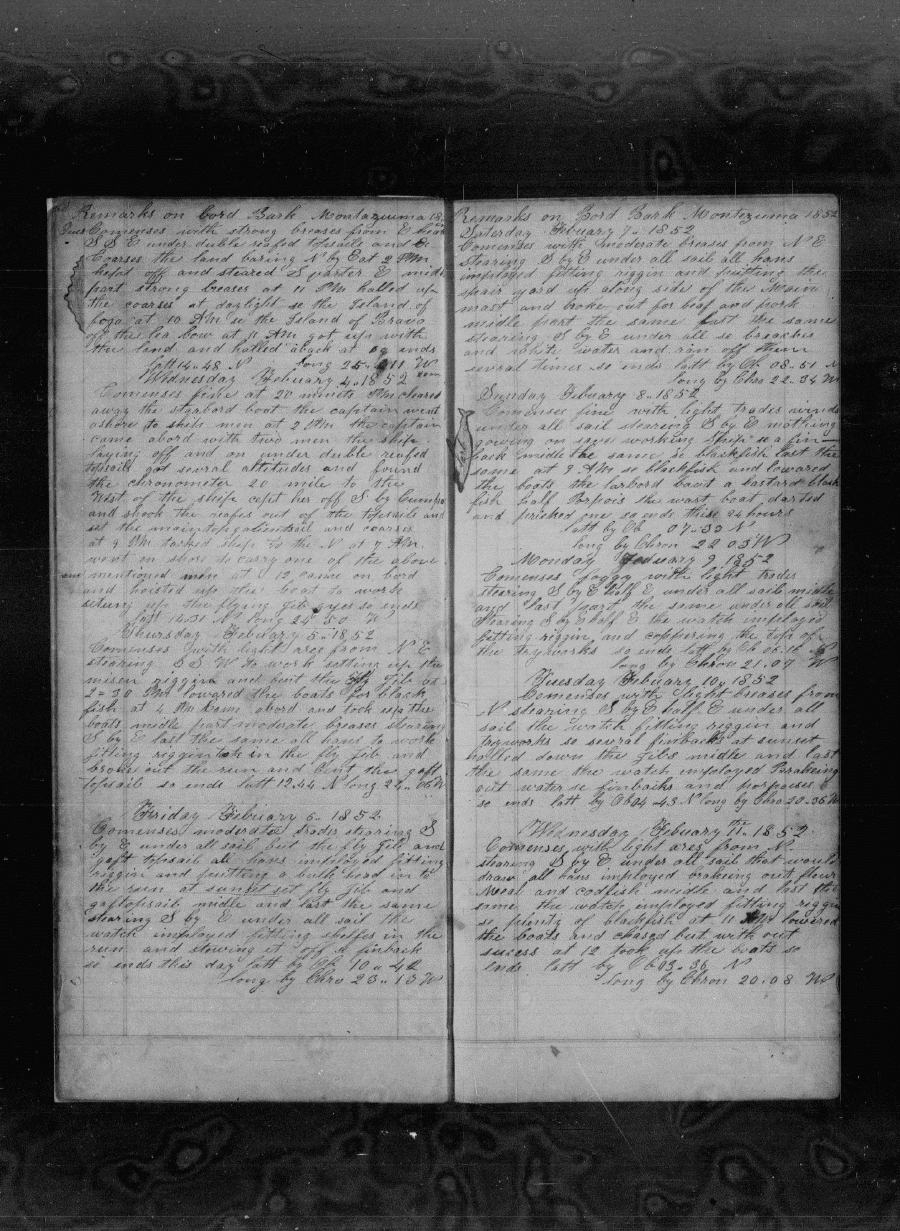 Remarks on bord Bark Montazuma 18
Tues Comenses with strong breases from E bore
S S E under duble reafed topsails and
Coarses the land baring N by E at 2 PM
kept off and steared S quarter E midle
part strong breases at 11 PM halled up
the coarses at daylight se the Island of
fogo at 10 AM se the Island of Bravo
off the lea bow at AM got up with
the land and halled aback at so ends
latt 14-48 N long 25-11 W
Wednesday Febuary 4-1852
Comenses fine at 20 minets PM cleared
away the starbord boat the captain went
ashore to ship men at 2 PM the captain
came abord with two men the ship
laying off and on under duble reafed
topsails got sevral altitudes and found
the chronometer 20 mile to the
West of the ship cept her off S by Cumps
and shook the reafes out of the topsails and
set the maintopgalentsail and coarses
at 9 PM tacked ship to the N at 7 AM
went in shore to carry one of the above
mentioned men at 12 came on bord
and hoisted up the boat to work
seting up the flying Jib guyes so ends
latt 14-31 N long 24-50 W
Thursday Febuary 5-1852
Comenses with light ares from N E
stearing S S W to work setting up the
misen riggin and bent the fly Jib at
2=30 PM lowared the boats for black
fish at 4 PM came abord and took up the
boats midle part moderate breases stearing
S by E last the same all hans to work
fitting riggin took in the fly Jib and
broke out the run and bent the gaft
topsail so ends latt 12.44 N long 24-06 W
Friday Febuary 6-1852
Comenses moderate trades stearing S
by E under all sail but the fly Jib and
gaft topsail all hans imployed fitting
riggin and puitting a bulk head in to
the run at sunset set fly Jib and
gaftopsail midle and last the same
stearing S by E under all sail the
watch imployed fitting shelfes in the
run and stowing it off se finback
so ends this day latt by Ob 10-42
long by Chro 23-13 W
Remarks on Bord Bark Montezuma 1852
Saterday Febuary 7-1852
Comenses with moderate breases from N E
stearing S by E under all sail all hans
imployed fitting riggin and puitting the
spair yard up along side of the Main
mast and broke out for beaf and pork
midle part the same last the same
stearing S by E under all se breaches
and white water and ran off them
sevral times so ends latt by Ob 08-51 N
long by Chro 22-34 W
Sunday Febuary 8-1852
Comenses fine with light trades winds
under all sail stearing S by E nothing
gowing on save working ship se a fin-
back midle the same se blackfish last the
same at 9 AM se blackfish and lowared
the boats the larbord bout a bastard black
fish half Porpois the wast boat darted
and pricked one so ends these 24 hours
latt by Ob 07-33 N
long by Chron 22 03 W
Monday Febuary 9 1852
Comenses foggy with light trades
stearing S by E half E under all sails midle
and last part the same under all sail
stearing S by E half E the watch imployed
fitting riggin and coppering the top of
the tryworks so ends latt by Ob 06.16 N
long by Chron 21.07 W
Tuesday Febuary 10-1852
Comenses with light breases from
N stearing S by E half E under all
sail the watch fitting riggin and
tryworks se several finbacks at sunset
halled down the Jibs midle and last
the same the watch imployed Brakeing
out water se finbacks and porpoises
so ends latt by Ob 04-43 N long by Chro 20-36 W
Wednesday Febuary 11th-1852
Comenses with light ares from N
stearing S by E under all sail that would
draw all hans imployed brakeing out flour
Meal and codfish midle and last the
same the watch imployed fitting riggin
se plenty of blackfish at 11 AM lowered
the boats and chased but with out
sucess at 12 took up the boats so
ends latt by Ob 03-36 N
long by Chron 20-08 W